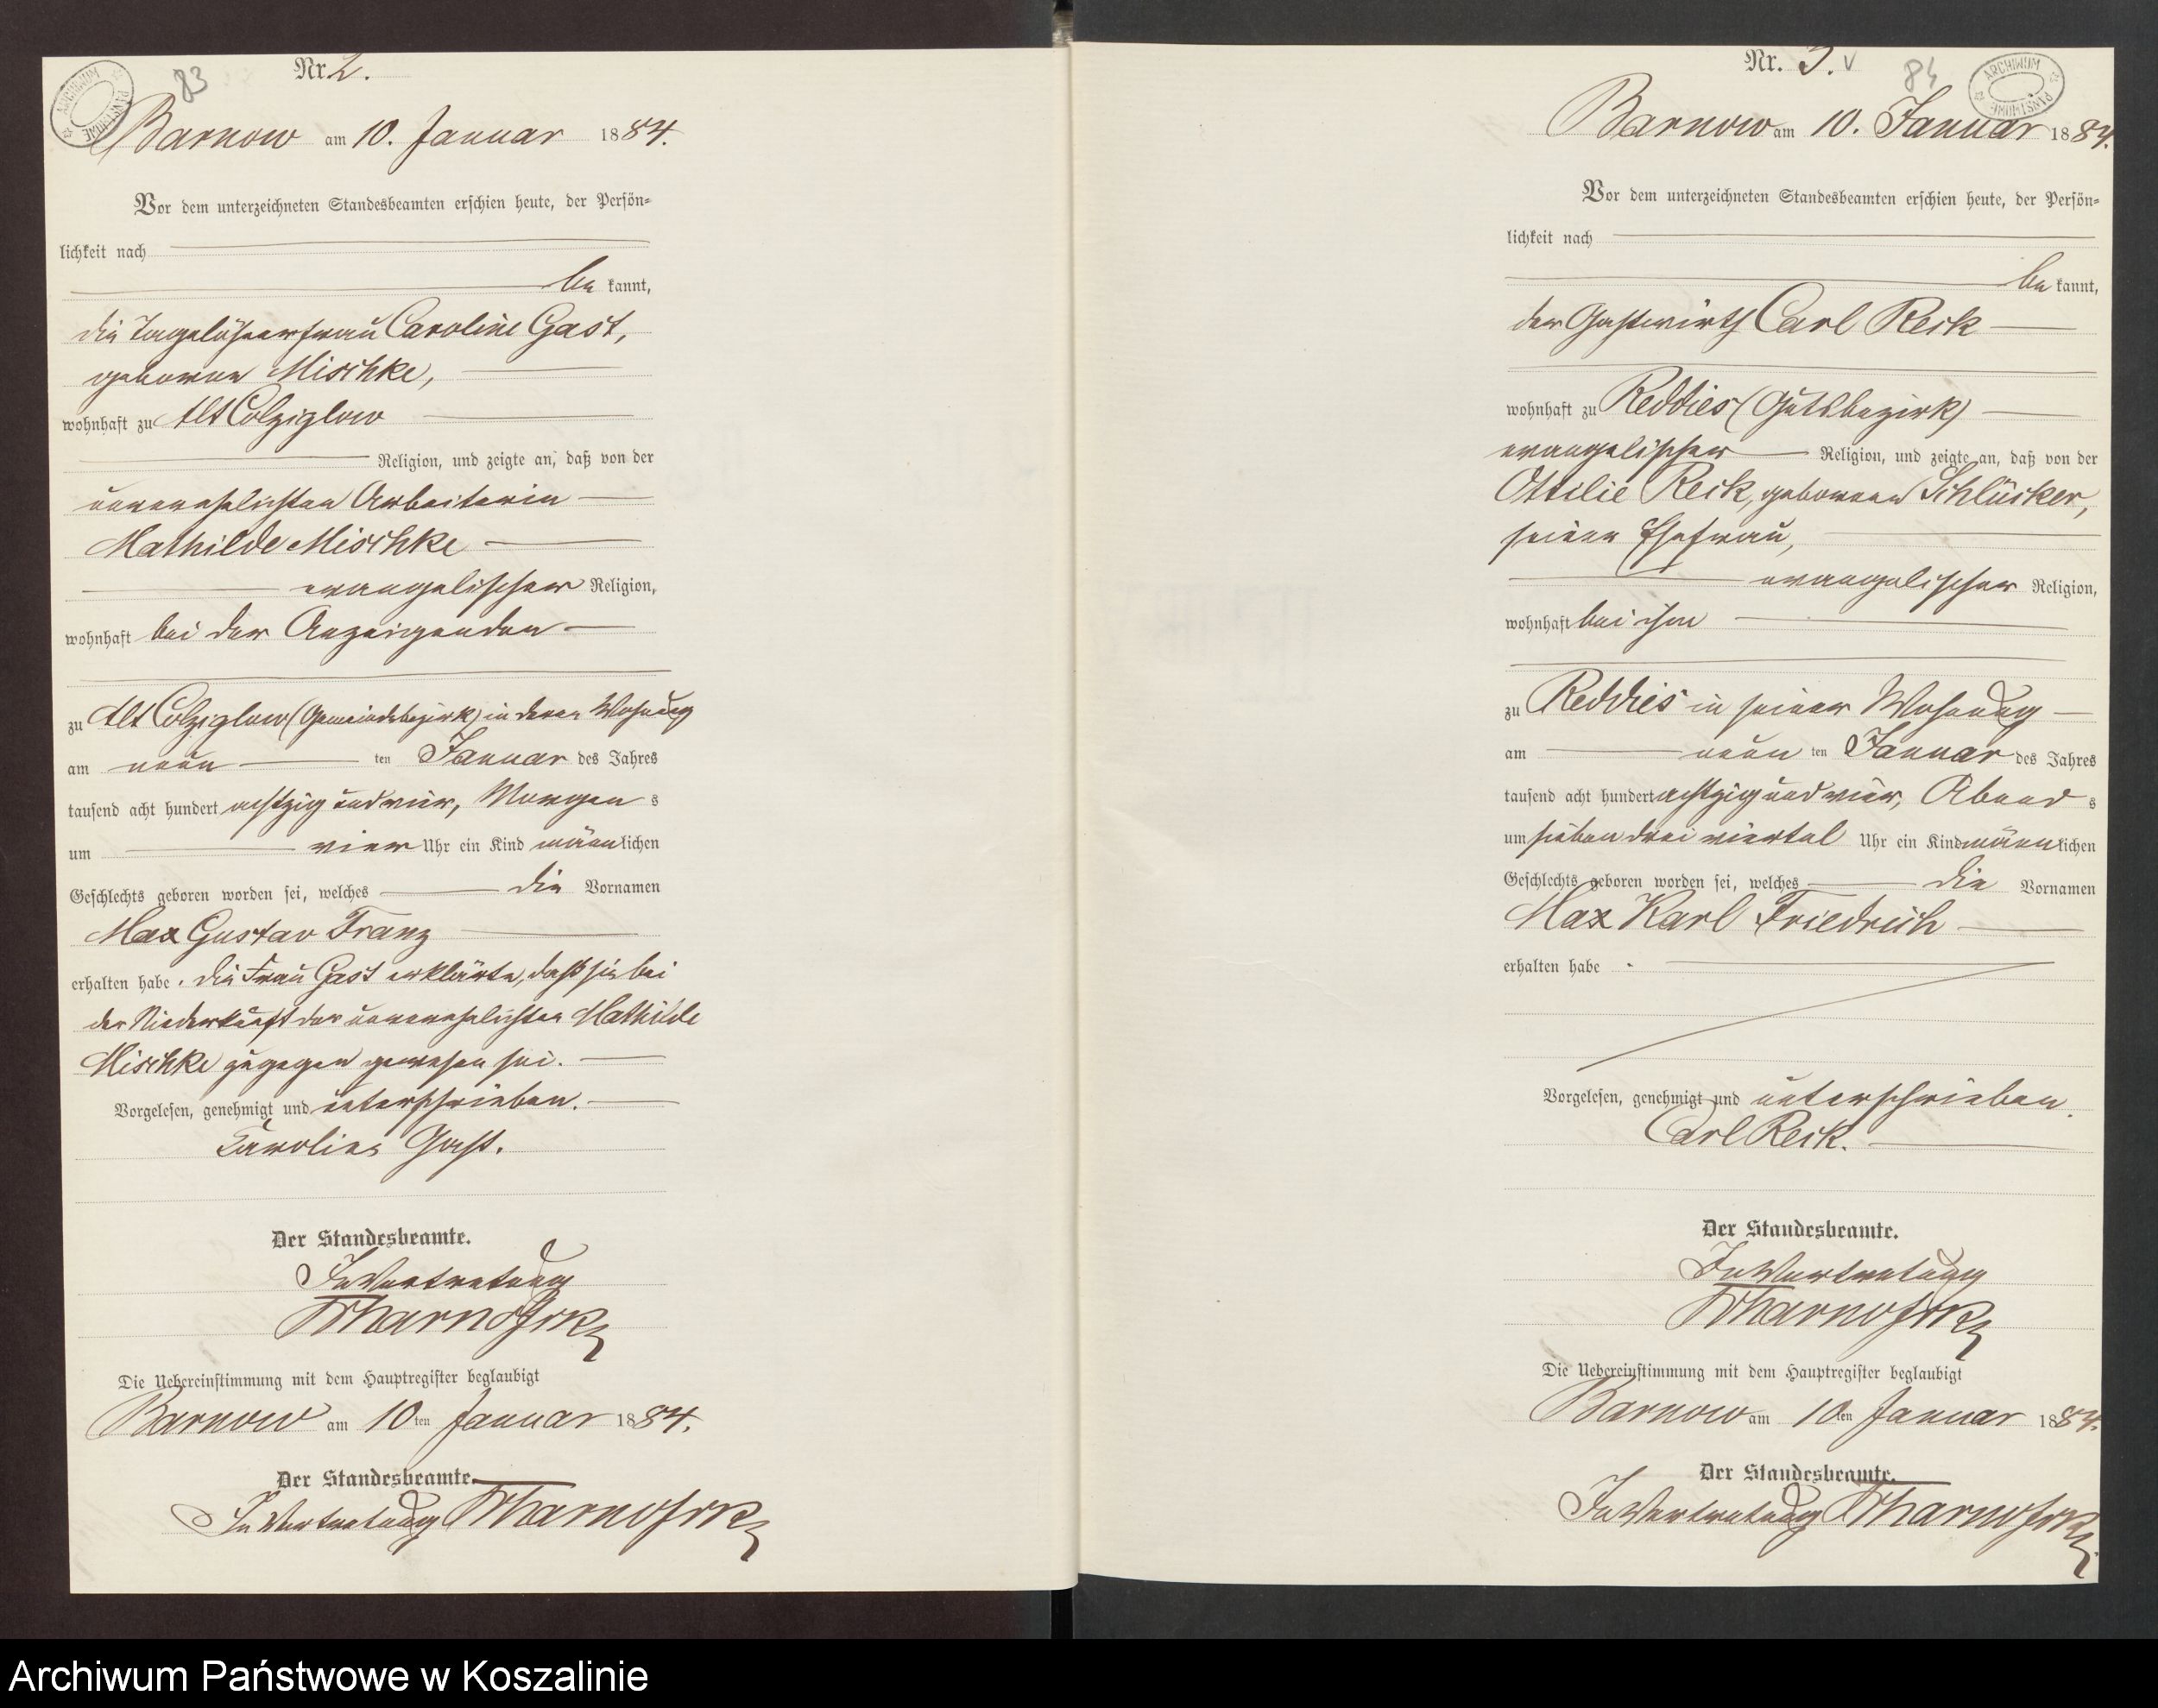 Nr. 2.
83
ARCHIWUM PAŃSTWOWE
Barnow am 10. Januar 1884.
Vor dem unterzeichneten Standesbeamten erschien heute, der Persön-
lichkeit nach
be kannt,
die Tagelöhnerfrau Caroline Gast,
geborene Mischke,
wohnhaft zu Alt Colziglow
Religion, und zeigte an, daß von der
unverehelichten Arbeiterin
Mathilde Mischke
evangelischer Religion,
wohnhaft bei der Anzeigenden
zu Alt Colziglow (Gemeindebezirk) in deren Wohnung
am neun ten Januar des Jahres
tausend acht hundert achtzig und vier, Morgens
um vier Uhr ein Kind männlichen
Geschlechts geboren worden sei, welches die Vornamen
Max Gustav Franz
erhalten habe. Die Frau Gast erklärte, daß sie bei
der Niederkunft der unverehelichten Mathilde
Mischke zugegen gewesen sei.
Vorgelesen, genehmigt und unterschrieben.
Karoline Gast.
Der Standesbeamte.
In Vertretung
Die Uebereinstimmung mit dem Hauptregister beglaubigt
Barnow am 10ten Januar 1884.
Der Standesbeamte.
In Vertretung
Nr. 3. v
84
ARCHIWUM PAŃSTWOWE
Barnow am 10. Januar 1884.
Vor dem unterzeichneten Standesbeamten erschien heute, der Persön-
lichkeit nach
be kannt,
der Gastwirth Carl Reck
wohnhaft zu Reddies (Gutsbezirk)
evangelischer Religion, und zeigte an, daß von der
Ottilie Reck, geborenen Schlücker,
seiner Ehefrau,
evangelischer Religion,
wohnhaft bei ihm
zu Reddies in seiner Wohnung
am neun ten Januar des Jahres
tausend acht hundert achtzig und vier, Abends
um sieben drei viertel Uhr ein Kind männlichen
Geschlechts geboren worden sei, welches die Vornamen
Max Karl Friedrich
erhalten habe.
Vorgelesen, genehmigt und unterschrieben.
Carl Reck.
Der Standesbeamte.
In Vertretung
Die Uebereinstimmung mit dem Hauptregister beglaubigt
Barnow am 10ten Januar 1884.
Der Standesbeamte.
In Vertretung
Archiwum Państwowe w Koszalinie